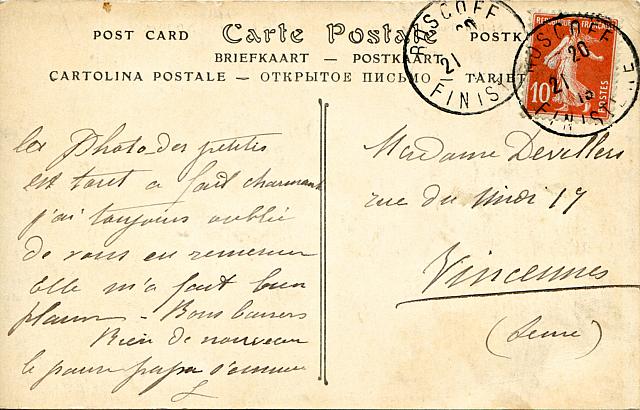 POST CARD Carte Postale POSTK
BRIEFKAART — POSTKAART
CARTOLINA POSTALE — ОТКРЫТОЕ ПИСЬМО — TARJET
ROSCOFF
20
21
FINIST
REPUBLIQUE FRANÇAISE
10
POSTES
ROSCOFF
20
21
FINISTERE
la Photo des petites
est tout a fait charmante
j'ai toujours oublié
de vous en remercier
Elle m'a fait bien
plaisir - Bons baisers
Rien de nouveau
le pauvre papa s'ennuie
Madame Devillers
rue du Midi 17
Vincennes
(Seine)